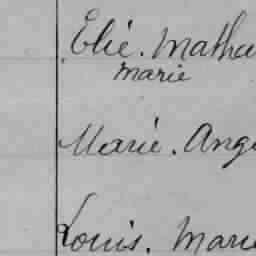 Elie. Mathu
Marie
Marie. Ang
Louis. Marie